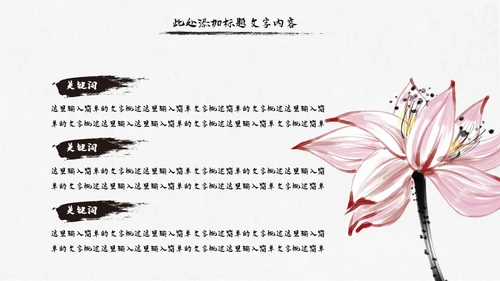 此处添加标题文字内容
关键词
这里输入简单的文字概述这里输入简单文字概述简单的文字概述这里输入简
单的文字概述这里输入简单的文字概述这里输入简单的文字概述这里输入简单
关键词
这里输入简单的文字概述这里输入简单文字概述简单的文字概述这里输入简
单的文字概述这里输入简单的文字概述这里输入简单的文字概述这里输入简单
关键词
这里输入简单的文字概述这里输入简单文字概述简单的文字概述这里输入简
单的文字概述这里输入简单的文字概述这里输入简单的文字概述这里输入简单